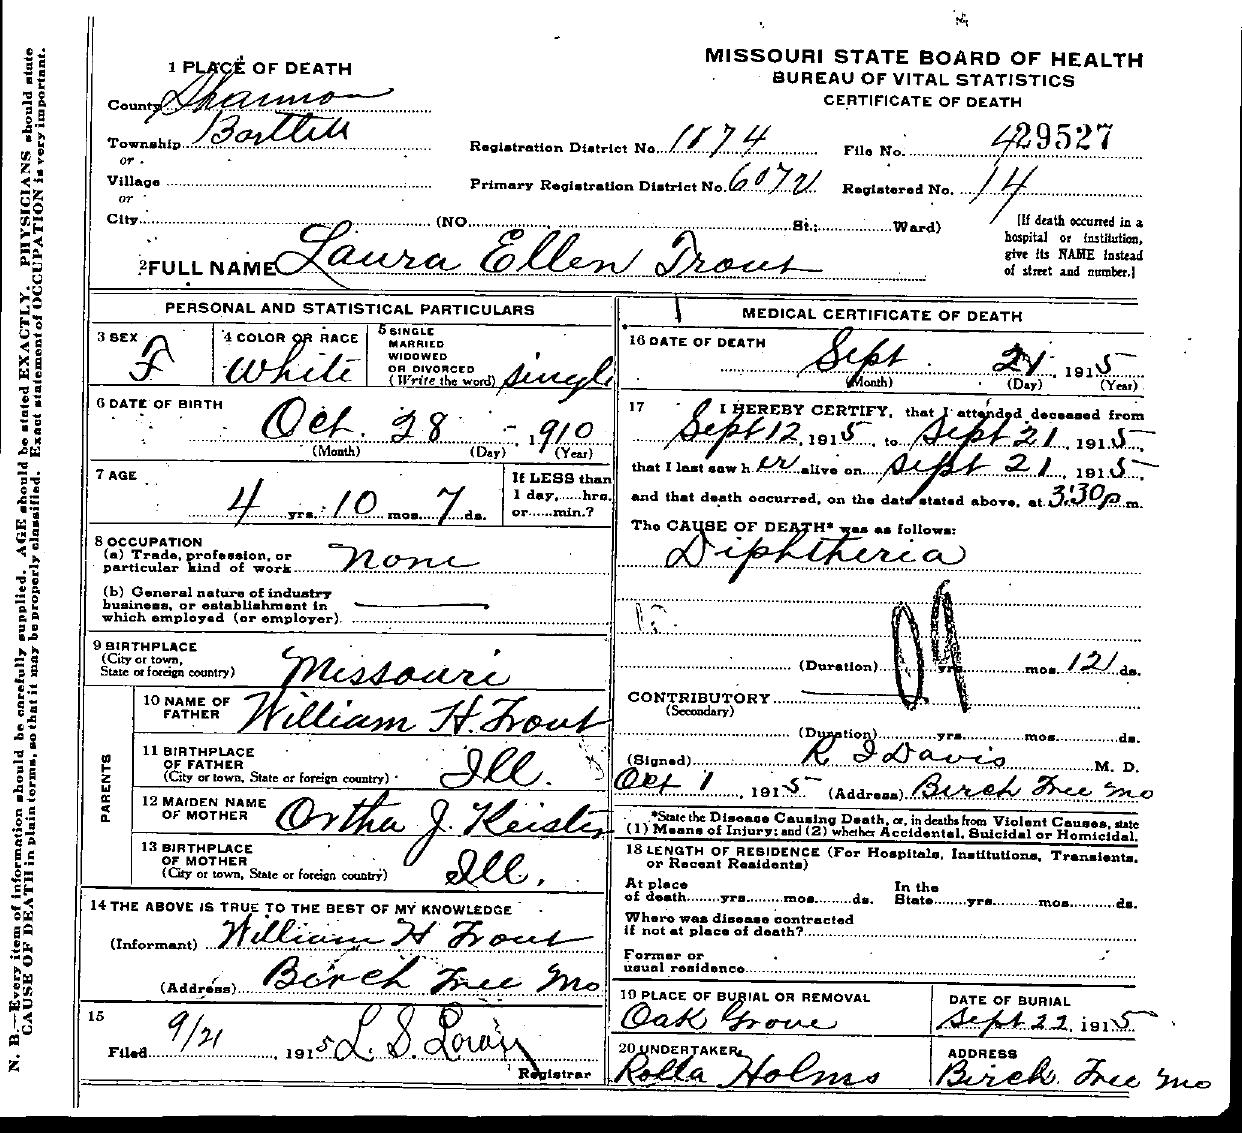 MISSOURI STATE BOARD OF HEALTH
BUREAU OF VITAL STATISTICS
CERTIFICATE OF DEATH
1 PLACE OF DEATH
County Shannon
Township Bartlett
or
Village
or
City (NO. St.; Ward)
Registration District No. 1174 File No. 29527
Primary Registration District No. 6072 Registered No. 14
[If death occurred in a
hospital or institution,
give its NAME instead
of street and number.]
2 FULL NAME Laura Ellen Trout
PERSONAL AND STATISTICAL PARTICULARS
3 SEX F
4 COLOR OR RACE White
5 SINGLE
MARRIED
WIDOWED
OR DIVORCED
(Write the word) single
6 DATE OF BIRTH
Oct. 28 - , 1910
(Month) (Day) (Year)
7 AGE
4 yrs. 10 mos. 7 ds.
If LESS than
1 day,......hrs.
or......min.?
8 OCCUPATION
(a) Trade, profession, or
particular kind of work none
(b) General nature of industry
business, or establishment in
which employed (or employer)
9 BIRTHPLACE
(City or town,
State or foreign country) Missouri
PARENTS
10 NAME OF
FATHER William H. Trout
11 BIRTHPLACE
OF FATHER
(City or town, State or foreign country) Ill.
12 MAIDEN NAME
OF MOTHER Ortha J. Keister
13 BIRTHPLACE
OF MOTHER
(City or town, State or foreign country) Ill.
14 THE ABOVE IS TRUE TO THE BEST OF MY KNOWLEDGE
(Informant) William H Trout
(Address) Birch Tree Mo
15
Filed 9/21, 1915 L. S.
Registrar
MEDICAL CERTIFICATE OF DEATH
16 DATE OF DEATH
Sept 21, 1915
(Month) (Day) (Year)
17 I HEREBY CERTIFY, that I attended deceased from
Sept 12, 1915, to Sept 21, 1915,
that I last saw her alive on Sept 21, 1915,
and that death occurred, on the date stated above, at 3:30 p.m.
The CAUSE OF DEATH* was as follows:
Diphtheria
(Duration) yrs. mos. 12 ds.
CONTRIBUTORY
(Secondary)
(Duration) yrs. mos. ds.
(Signed) R I Davis M. D.
Oct 1, 1915 (Address) Birch Tree Mo
*State the Disease Causing Death, or, in deaths from Violent Causes, state
(1) Means of Injury; and (2) whether Accidental, Suicidal or Homicidal.
18 LENGTH OF RESIDENCE (For Hospitals, Institutions, Transients,
or Recent Residents)
At place
of death......yrs......mos......ds.
In the
State......yrs......mos......ds.
Where was disease contracted
if not at place of death?
Former or
usual residence
19 PLACE OF BURIAL OR REMOVAL
Oak Grove
DATE OF BURIAL
Sept 22, 1915
20 UNDERTAKER
Rolla Holms
ADDRESS
Birch Tree Mo
N. B.—Every item of information should be carefully supplied. AGE should be stated EXACTLY. PHYSICIANS should state
CAUSE OF DEATH in plain terms, so that it may be properly classified. Exact statement of OCCUPATION is very important.